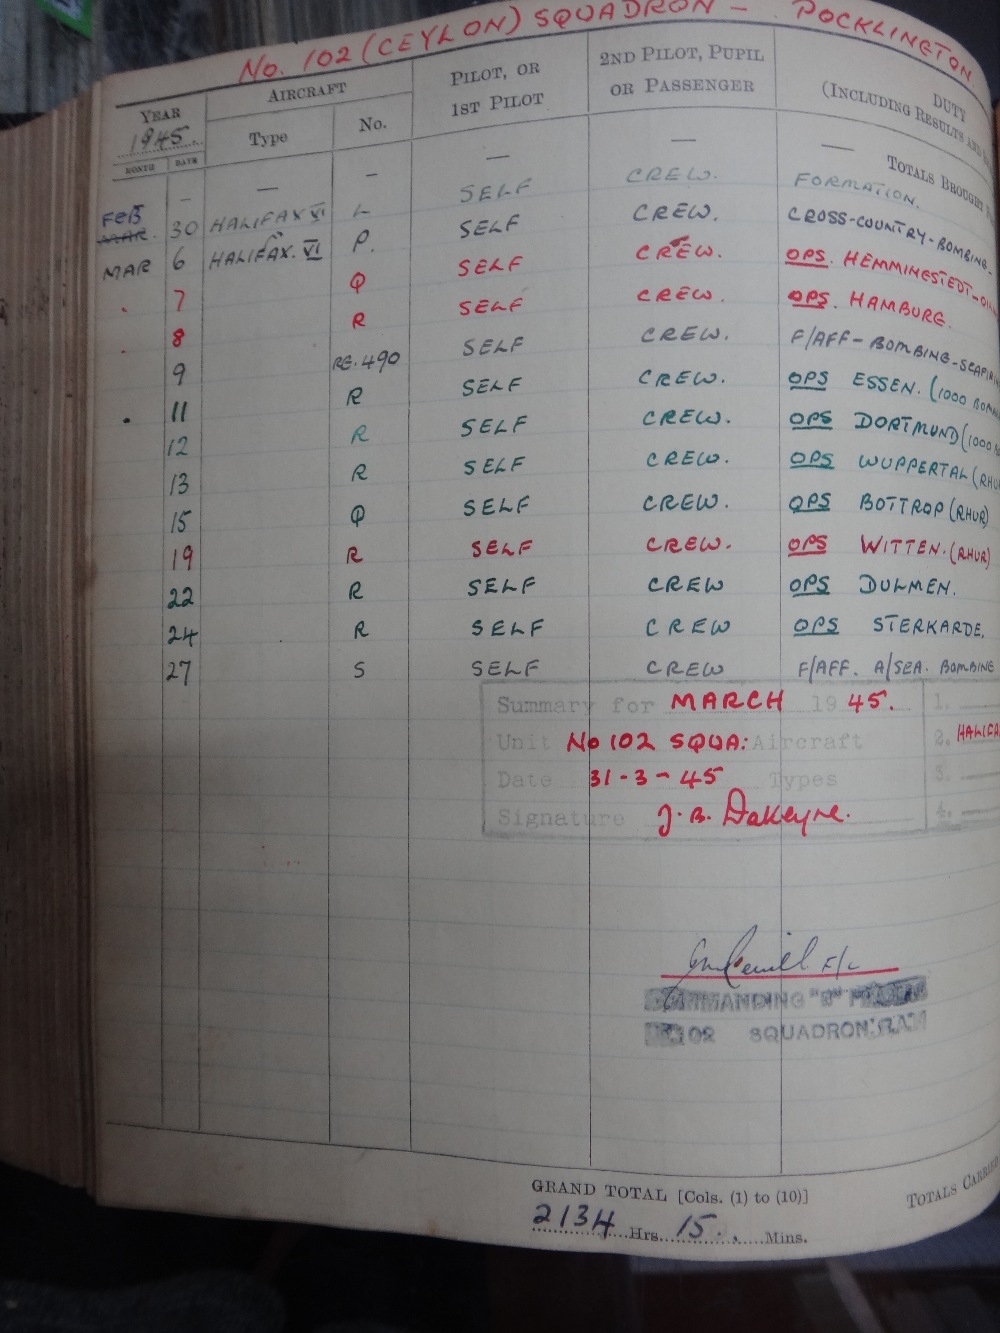 No. 102 (CEYLON) SQUADRON - POCKLINGTON
YEAR AIRCRAFT PILOT, OR 1ST PILOT 2ND PILOT, PUPIL OR PASSENGER DUTY (INCLUDING RESULTS AND
1945 Type No.
MONTH DATE
— — — — — — TOTALS BROUGHT
FEB MAR. 30 HALIFAX VI L SELF CREW. FORMATION.
MAR 6 HALIFAX. VI P. SELF CREW. CROSS-COUNTRY-BOMBING.
. 7 Q SELF CREW. OPS. HEMMINGSTEDT-
. 8 R SELF CREW. OPS. HAMBURG.
9 RG.490 SELF CREW. F/AFF-BOMBING-
. 11 R SELF CREW. OPS ESSEN. (1000
12 R SELF CREW. OPS DORTMUND (1000
13 R SELF CREW. OPS WUPPERTAL (RHUR
15 Q SELF CREW. OPS BOTTROP (RHUR)
19 R SELF CREW. OPS WITTEN. (RHUR)
22 R SELF CREW OPS DULMEN.
24 R SELF CREW OPS STERKARDE.
27 S SELF CREW F/AFF. A/SEA. BOMBING
Summary for MARCH 1945. 1.
Unit No 102 SQUA: Aircraft 2. HALIFA
Date 31-3-45 Types 3.
Signature J. B. Dakeyne. 4.
F/L
COMMANDING "B" FLIGHT
102 SQUADRON R.A.F.
GRAND TOTAL [Cols. (1) to (10)] TOTALS CARRIED
2134 Hrs. 15. Mins.